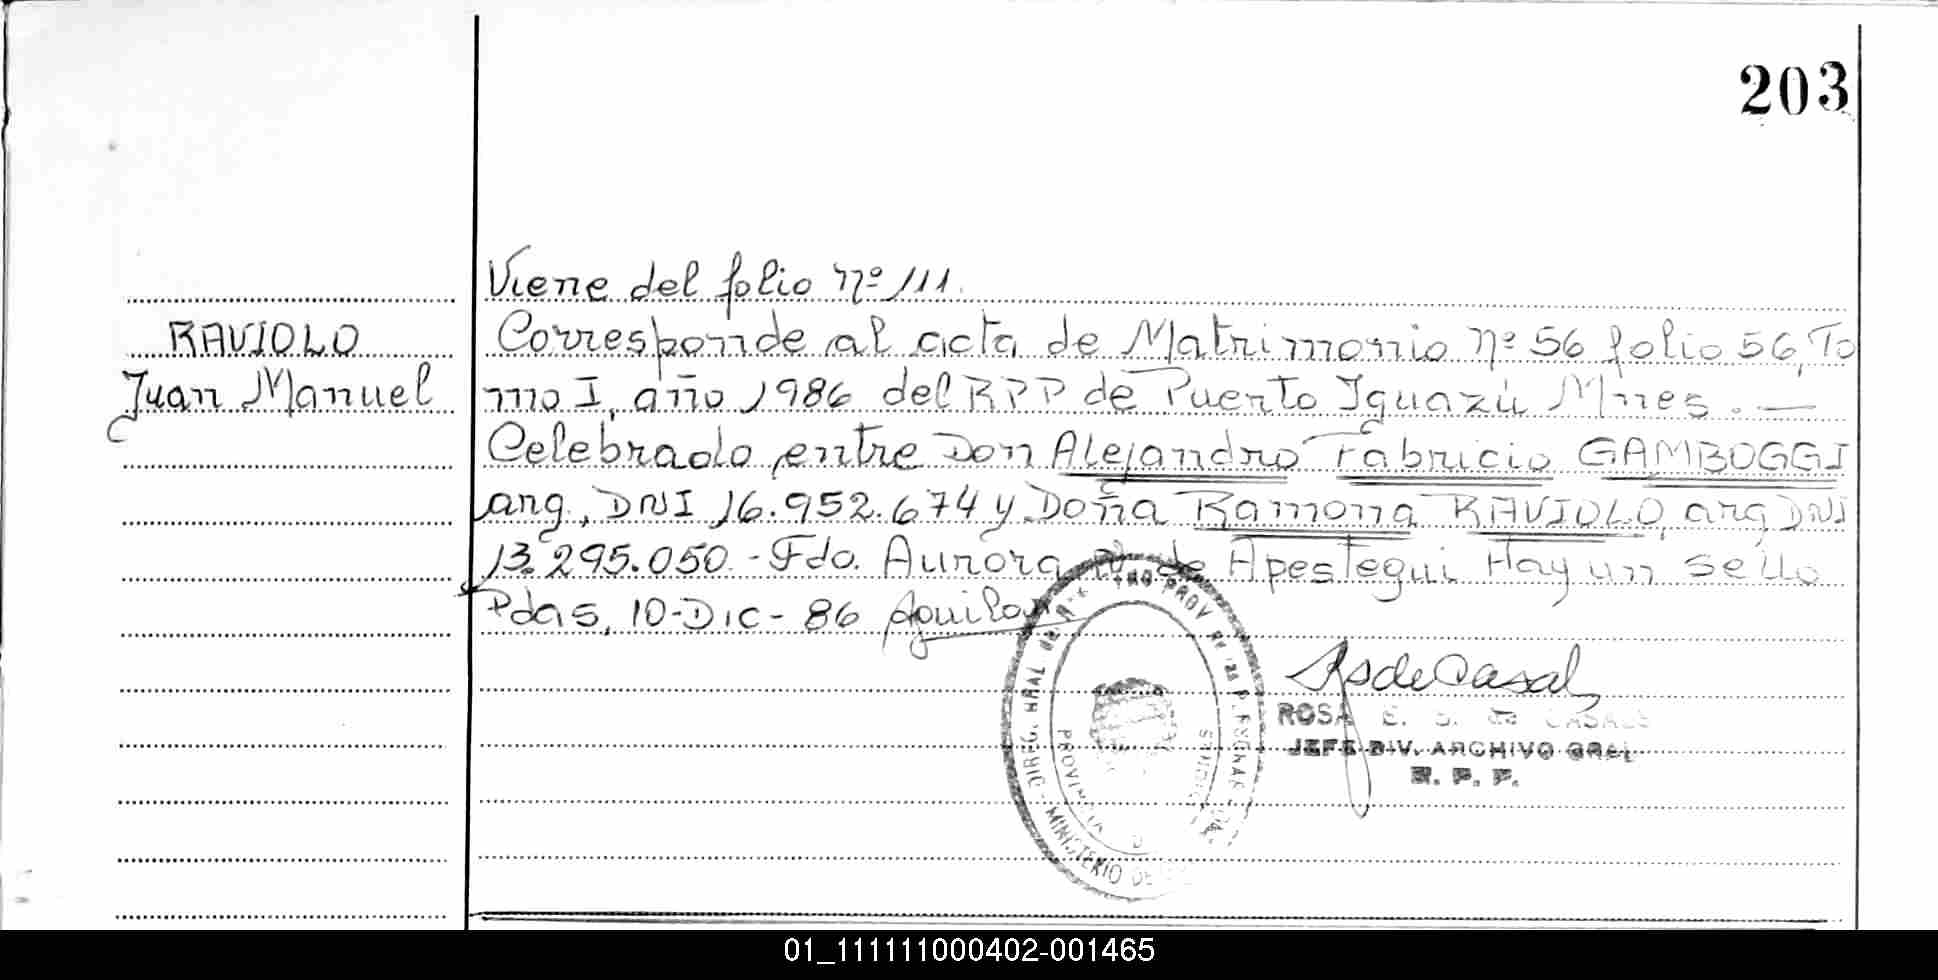 203
Viene del folio nº 111.
RAVIOLO
Juan Manuel
Corresponde al acta de Matrimonio nº 56 folio 56, To
mo I, año 1986 del RPP de Puerto Iguazú Mnes. —
Celebrado entre Don Alejandro Fabricio GAMBOGGI
arg, DNI 16.952.674 y Doña Ramona RAVIOLO, arg DNI
13.295.050.- Fdo. Aurora de Apestegui Hay un sello
Pdas, 10-Dic-86 Aguilar
RsdeCasal
ROSA E. S. de CASALS
JEFE DIV. ARCHIVO GRAL
R. P. P.
DIREG. GRAL del PROV de las P
MINISTERIO DE
PROVINCIA
01_111111000402-001465